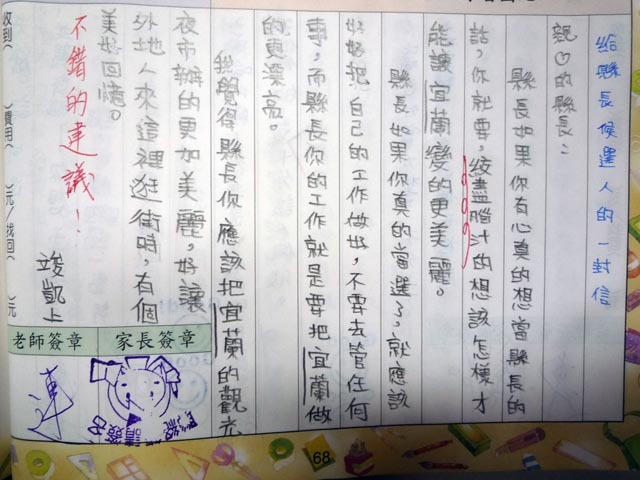 給縣長候選人的一封信
親♡的縣長：
縣長如果你有心真的想當縣長的
話，你就要，絞盡腦汁的想該怎樣才
能讓宜蘭變的更美麗。
縣長如果你真的當選了，就應該
好好把自己的工作做好，不要去管任何
事，而縣長你的工作就是要把宜蘭做
的更漂亮。
我覺得縣長你應該把宜蘭的觀光
夜市辦的更加美麗，好讓
外地人來這裡逛街時，有個
美好回憶。
竣凱上
不錯的建議！
家長簽章
老師簽章
連
收到(
)費用(
)元/找回(
)元
68